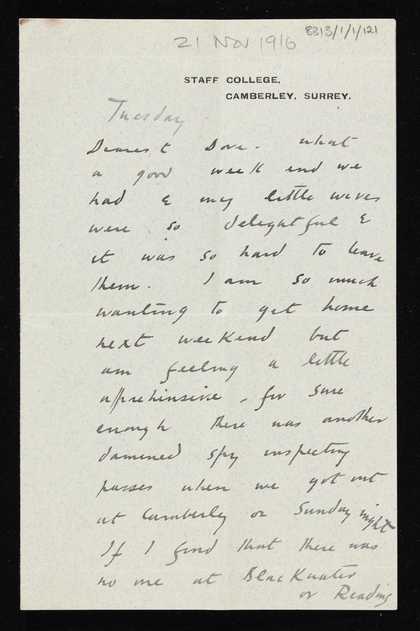 21 Nov 1916
8313/1/1/121
STAFF COLLEGE,
CAMBERLEY, SURREY.
Tuesday
Dearest Dove. What
a good week end we
had & my little wives
were so delightful &
it was so hard to leave
them. I am so much
wanting to get home
next weekend but
am feeling a little
apprehinsive, for sure
enough there was another
damened spy inspecting
passes when we got out
at Camberley on Sunday night
If I find that there was
no one at Blackwater
or Reading